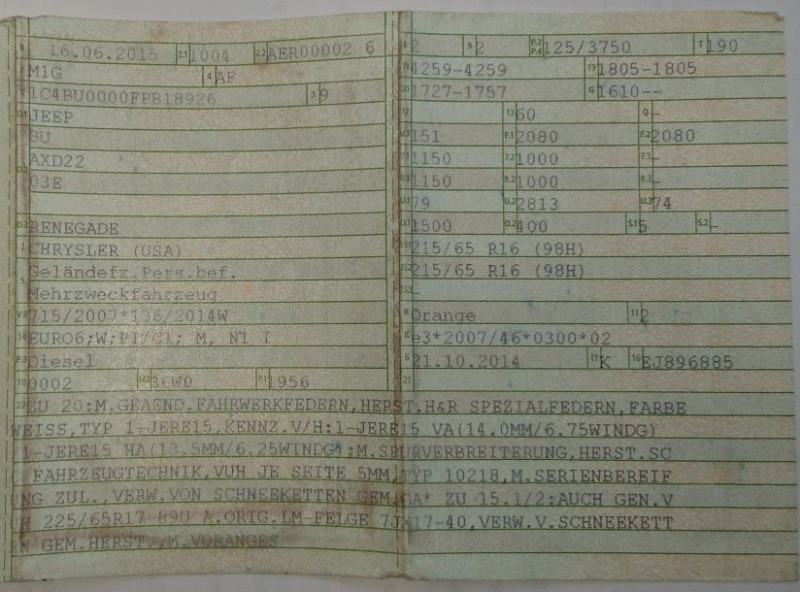 B 16.06.2015 2.1 1004 2.2 AER00002 6
J M1G 4 AF
E 1C4BU0000FPB18926 3 9
D.1 JEEP
BU
D.2 AXD22
03E
D.3 RENEGADE
2 CHRYSLER (USA)
5 Geländefz.Pers.bef.
Mehrzweckfahrzeug
V.9 715/2007*136/2014W
14 EURO6;W;PI/CI; M, N1 I
P.3 Diesel
10 0002 14.1 36W0 P.1 1956
L 2 9 2 P.2 P.4 125/3750 T 190
18 4259-4259 19 1805-1805
20 1727-1757 G 1610--
12 - 13 60 Q -
V.7 151 F.1 2080 F.2 2080
7.1 1150 7.2 1000 7.3 -
8.1 1150 8.2 1000 8.3 -
U.1 79 U.2 2813 U.3 74
O.1 1500 O.2 400 S.1 5 S.2 -
15.1 215/65 R16 (98H)
15.2 215/65 R16 (98H)
15.3 -
R Orange 11 2
K e3*2007/46*0300*02
6 21.10.2014 17 K 16 EJ896885
21
22 ZU 20:M.GEAEND.FAHRWERKFEDERN,HERST.H&R SPEZIALFEDERN,FARBE
WEISS,TYP 1-JERE15,KENNZ.V/H:1-JERE15 VA(14.0MM/6.75WINDG)
1-JERE15 HA(13.5MM/6.25WINDG);M.SPURVERBREITERUNG,HERST.SC
FAHRZEUGTECHNIK,VUH JE SEITE 5MM,TYP 10218,M.SERIENBEREIF
NG ZUL.,VERW.VON SCHNEEKETTEN GEM.GA* ZU 15.1/2:AUCH GEN.V
H 225/65R17 89U A.ORIG.LM-FELGE 7JX17-40,VERW.V.SCHNEEKETT
N GEM.HERST./.M.VORANGES